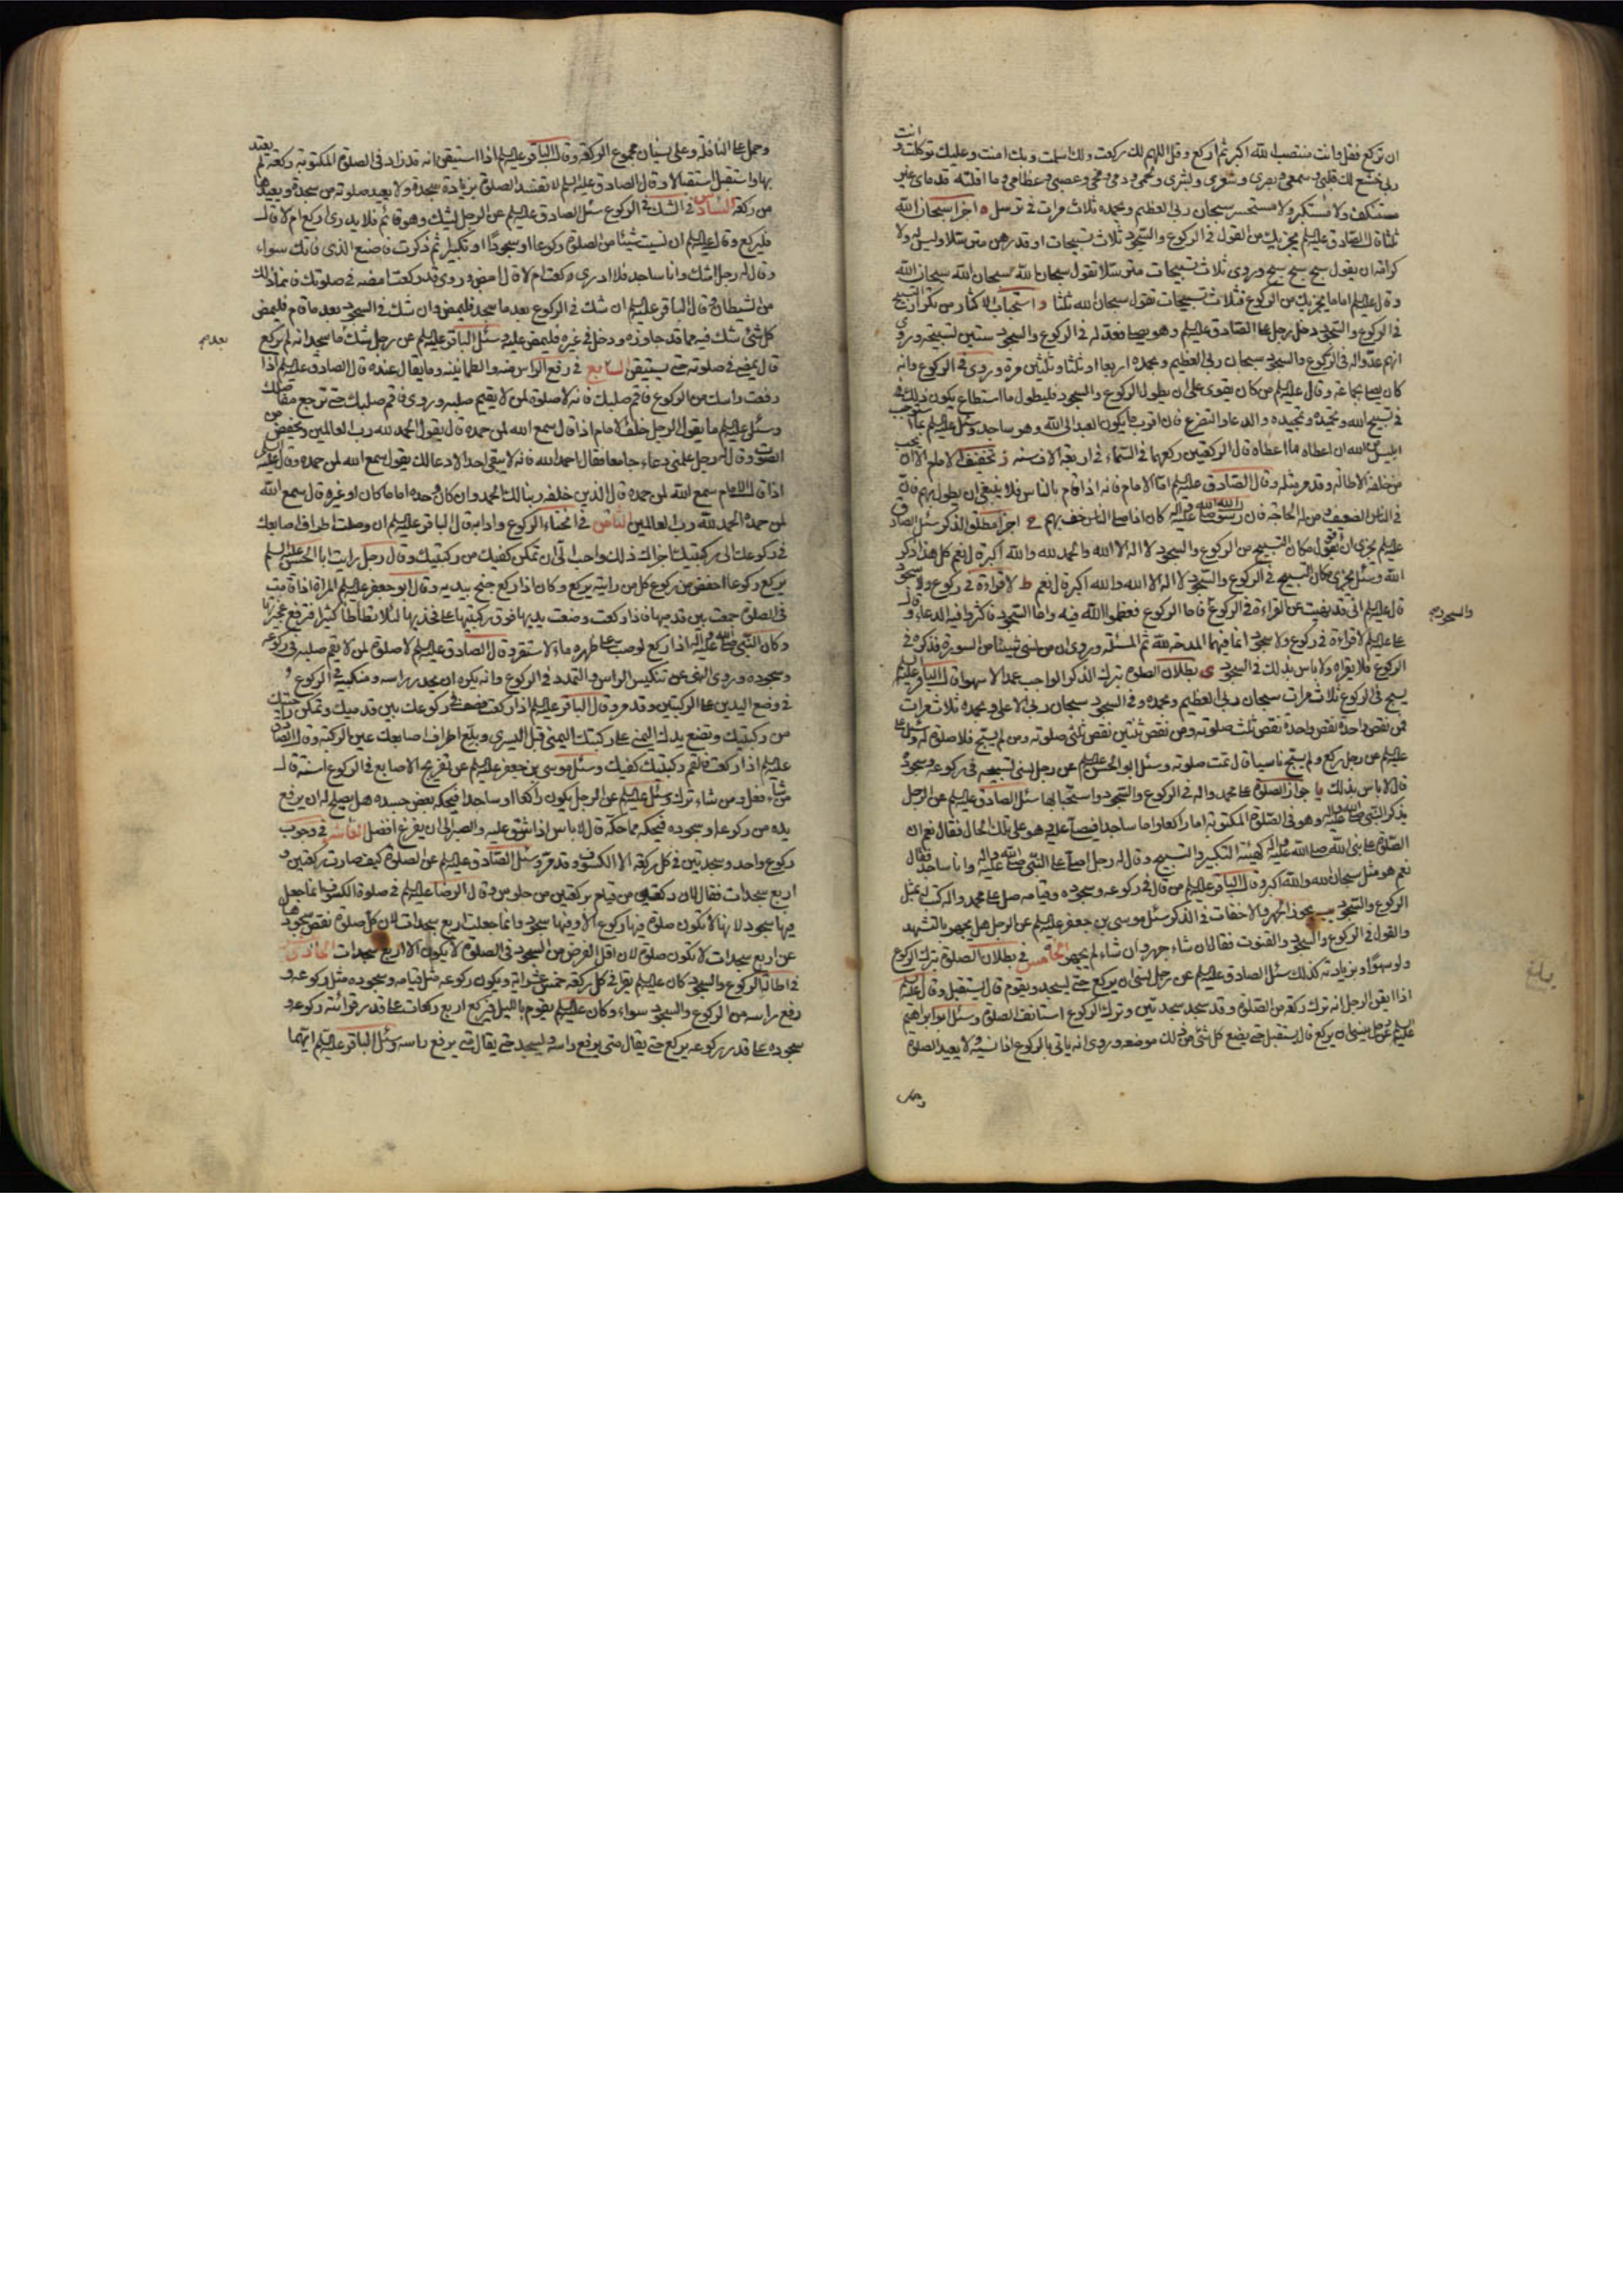 ان تركع فقل وانت منتصب الله اكبر ثم اركع وقل اللهم لك ركعت ولك اسلمت وبك امنت وعليك توكلت وانت
ربي خشع لك قلبي وسمعي وبصري وشعري وبشري ولحمي ودمي ومخي وعصبي وعظامي وما اقلته قدماي غير
مستنكف ولا مستكبر ولا مستحسر سبحان ربي العظيم وبحمده ثلاث مرات في ترسل ه اجزا سبحان الله
ثلثا قال الصادق عليه السلم يجزيك من القول في الركوع والسجود ثلاث تسبيحات او قدرهن مترسلا وليس له ولا
كرامة ان يقول سبح سبح سبح وروي ثلاث تسبيحات مترسلا تقول سبحان الله سبحان الله سبحان الله
وقال عليه السلم اما ما يجزيك من الركوع فثلاث تسبيحات تقول سبحان الله ثلثا و استحباب الاكثار من تكرار التسبيح
في الركوع والسجود دخل رجل على الصادق عليه السلم وهو يصلي فعد له في الركوع والسجود ستين تسبيحة وروي
انهم عدوا له في الركوع والسجود سبحان ربي العظيم وبحمده اربعا او ثلثا وثلثين مرة وروي في الركوع وانه
كان يصلي بجماعة وقال عليه السلم من كان يقوى على ان يطول الركوع والسجود فليطول ما استطاع يكون ذلك في
في تسبيح الله وتحميده وتمجيده والدعاء والتضرع فان اقرب ما يكون العبد الى الله وهو ساجد وسئل عليه السلم بما استوجب
ابليس من الله ان اعطاه ما اعطاه قال لركعتين ركعهما في السماء في اربعة الاف سنة ز تخفيف الامام الا ان يحب
من خلفه الاطالة وقد مر مثله وقال الصادق عليه السلم اما الامام فانه اذا قام بالناس فلا ينبغي ان يطول بهم فان
في الناس الضعيف ومن له الحاجة فان رسول الله صلى الله عليه واله كان اذا صلى بالناس خف بهم ح اجزا مطلق الذكر سئل الصادق
عليه السلم يجزي ان نقول مكان التسبيح من الركوع والسجود لا اله الا الله والحمد لله والله اكبر قال نعم كل هذا ذكر
الله وسئل يجزي مكان التسبيح في الركوع والسجود لا اله الا الله والله اكبر قال نعم ط لا قراءة في ركوع ولا سجود
قال عليه السلم اني قد نهيت عن القراءة في الركوع فاما الركوع فعظموا الله فيه واما السجود فاكثروا فيه الدعاء وقال
علي عليه السلم لا قراءة في ركوع ولا سجود انما فيهما المدحة لله ثم المسئلة وروي ان من نسي شيئا من السورة فذكره في
الركوع فلا يقراه ولا باس بذلك في السجود ي بطلان الصلوة بترك الذكر الواجب عمدا لا سهوا قال الباقر عليه السلم
يسبح في الركوع ثلاث مرات سبحان ربي العظيم وبحمده وفي السجود سبحان ربي الاعلى وبحمده ثلاث مرات
فمن نقص واحدة نقص ثلث صلوته ومن نقص ثنتين نقص ثلثي صلوته ومن لم يسبح فلا صلوة له وسئل علي
عليه السلم عن رجل ركع ولم يسبح ناسيا قال تمت صلوته وسئل ابو الحسن عليه السلم عن رجل نسي تسبيحه في ركوعه وسجوده
قال لا باس بذلك يا جواز الصلوة على محمد واله في الركوع والسجود واستحبابها سئل الصادق عليه السلم عن الرجل
يذكر النبي صلى الله عليه واله وهو في الصلوة المكتوبة اما راكعا واما ساجدا فيصلي عليه وهو على تلك الحال فقال نعم ان
الصلوة على نبي الله صلى الله عليه واله كهيئة التكبير والتسبيح وقال له رجل اصلي على النبي صلى الله عليه واله وانا ساجد فقال
نعم هو مثل سبحان الله والله اكبر وقال الباقر عليه السلم من قال في ركوعه وسجوده وقيامه صل على محمد واله كتب له بمثل
الركوع والسجود يب يجوز الجهر والاخفات في الذكر سئل موسى بن جعفر عليه السلم عن الرجل هل يجهر بالتشهد
والقول في الركوع والسجود والقنوت فقال ان شاء جهر وان شاء لم يجهر الخامس في بطلان الصلوة بترك الركوع
ولو سهوا وبزيادته كذلك سئل الصادق عليه السلم عن رجل نسي ان يركع حتى يسجد ويقوم قال يستقبل وقال عليه السلم
اذا ايقن الرجل انه ترك ركعة من الصلوة وقد سجد سجدتين وترك الركوع استانف الصلوة وسئل ابو ابراهيم
عليه السلم عن رجل ينسى ان يركع قال يستقبل حتى يضع كل شئ من ذلك موضعه وروي انه ياتي بالركوع اذا نسيه ولا يعيد الصلوة
والسجود صح
بلغ
وحمل
وحمل على النافلة وعلى نسيان مجموع الركعة وقال الباقر عليه السلم اذا استيقن انه قد زاد في الصلوة المكتوبة ركعة لم يعتد
بها واستقبل استقبالا وقال الصادق عليه السلم لا تفسد الصلوة بزيادة سجدة ولا يعيد صلوته من سجدة ويعيدها
من ركعة السادس في الشك في الركوع سئل الصادق عليه السلم عن الرجل يشك وهو قائم فلا يدري اركع ام لا قال
فليركع وقال عليه السلم ان نسيت شيئا من الصلوة ركوعا او سجودا او تكبيرا ثم ذكرت فاصنع الذي فاتك سواء
وقال له رجل اشك وانا ساجد فلا ادري ركعت ام لا قال امض وروي قد ركعت امضه في صلوتك فانما ذلك
من الشيطان وقال الباقر عليه السلم ان شك في الركوع بعد ما سجد فليمض وان شك في السجود بعد ما قام فليمض
كل شئ شك فيه مما قد جاوزه ودخل في غيره فليمض عليه وسئل الباقر عليه السلم عن رجل شك ما سجد انه لم يركع
بعد صح
قال يمضي في صلوته حتى يستيقن السابع في رفع الراس منه والطمانينة وما يقال عنده قال الصادق عليه السلم اذا
رفعت راسك من الركوع فاقم صلبك فانه لا صلوة لمن لا يقيم صلبه وروي فاقم صلبك حتى ترجع مفاصلك
وسئل عليه السلم ما يقول الرجل خلف الامام اذا قال سمع الله لمن حمده قال يقول الحمد لله رب العالمين ويخفض من
الصوت وقال له رجل علمني دعاء جامعا فقال احمد الله فانه لا يبقى احد الا دعا لك يقول سمع الله لمن حمده وقال عليه السلم
اذا قال الامام سمع الله لمن حمده قال الذين خلفه ربنا لك الحمد وان كان وحده اماما كان او غيره قال سمع الله
لمن حمده الحمد لله رب العالمين الثامن في انحناء الركوع وادابه قال الباقر عليه السلم ان وصلت اطراف اصابعك
في ركوعك الى ركبتيك اجزاك ذلك واحب الي ان تمكن كفيك من ركبتيك وقال رجل رايت ابا الحسن عليه السلم
يركع ركوعا اخفض من ركوع كل من رايته يركع وكان اذا ركع جنح بيديه وقال ابو جعفر عليه السلم المراة اذا قامت
في الصلوة جمعت بين قدميها فاذا ركعت وضعت يديها فوق ركبتيها على فخذيها لئلا تطاطا كثيرا فترتفع عجيزتها
وكان النبي صلى الله عليه واله اذا ركع لو صب على ظهره ماء لاستقر وقال الصادق عليه السلم لا صلوة لمن لا يقم صلبه في ركوعه
وسجوده وروي النهي عن تنكيس الراس والتمدد في الركوع وانه يكره ان يحدر راسه ومنكبيه في الركوع و
في وضع اليدين على الركبتين وقد مر وقال الباقر عليه السلم اذا ركعت فصف في ركوعك بين قدميك وتمكن راحتيك
من ركبتيك وتضع يدك اليمنى على ركبتك اليمنى قبل اليسرى وبلع اطراف اصابعك عين الركبة وقال الصادق
عليه السلم اذا ركعت فالقم ركبتيك كفيك وسئل موسى بن جعفر عليه السلم عن تفريج الاصابع في الركوع اسنة قال
من شاء فعل ومن شاء ترك وسئل عليه السلم عن الرجل يكون راكعا او ساجدا فيحكه بعض جسده هل يصلح له ان يرفع
يده من ركوعه او سجوده فيحكه مما حكه قال لا باس اذا شق عليه والصبر الى ان يفرغ افضل العاشر في وجوب
ركوع واحد وسجدتين في كل ركعة الا الكسوف وقد مر وسئل الصادق عليه السلم عن الصلوة كيف صارت ركعتين و
اربع سجدات فقال لان ركعة من قيام بركعتين من جلوس وقال الرضا عليه السلم في صلوة الكسوف انما جعل
فيها سجود لانها لا تكون صلوة فيها ركوع الا وفيها سجود وانما جعلت اربع سجدات لان كل صلوة نقص سجودها
عن اربع سجدات لا تكون صلوة لان اقل الفرض من السجود في الصلوة لا يكون الا اربع سجدات الحادي عشر
في اطالة الركوع والسجود كان عليه السلم يقرا في كل ركعة خمس عشر اية ويكون ركوعه مثل قيامه وسجوده مثل ركوعه و
رفع راسه من الركوع والسجود سواء وكان عليه السلم يقوم بالليل فيركع اربع ركعات على قدر قرائته ركوعه و
سجوده على قدر ركوعه يركع حتى يقال متى يرفع راسه ويسجد حتى يقال متى يرفع راسه وسئل الباقر عليه السلم ايهما